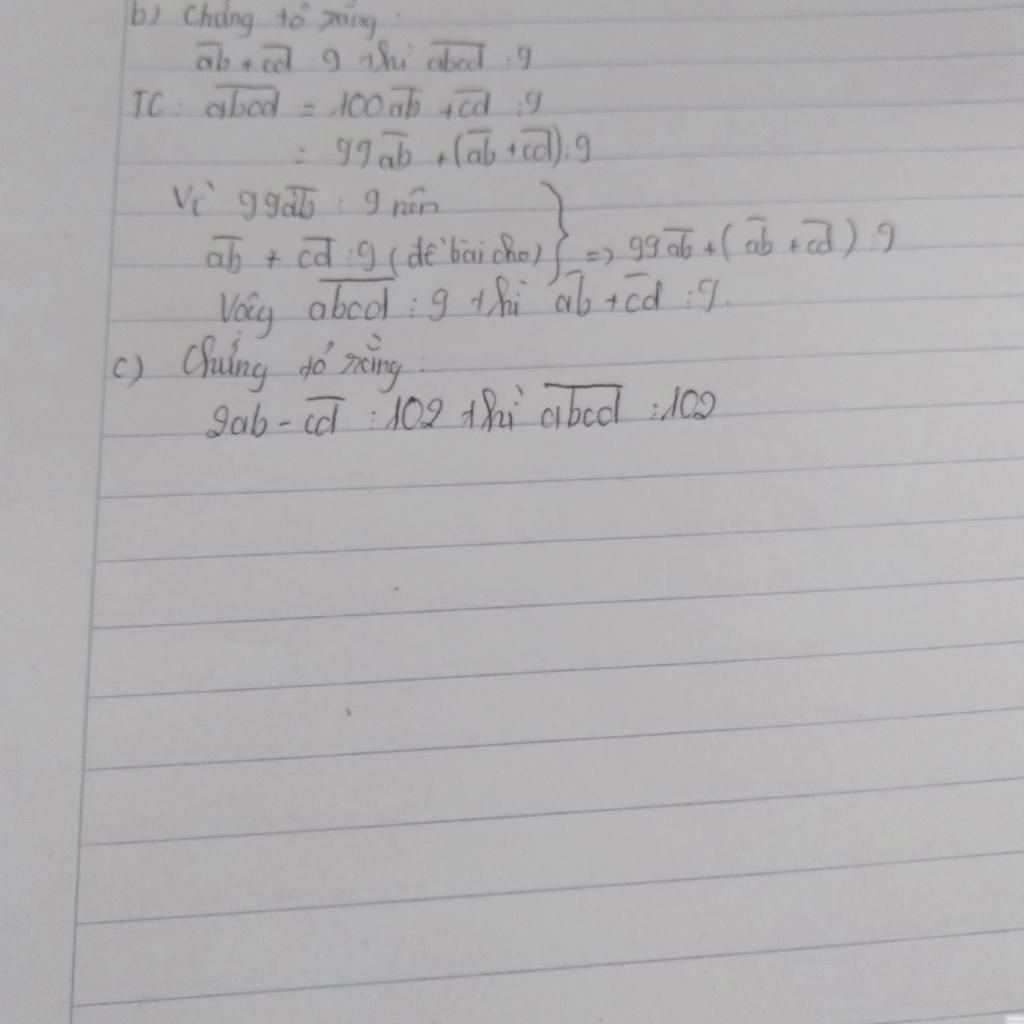 b) Chứng tỏ rằng:
a̅b̅ + c̅d̅ ⋮ 9 thì a̅b̅c̅d̅ ⋮ 9
TC: a̅b̅c̅d̅ = 100a̅b̅ + c̅d̅ ⋮ 9
= 99a̅b̅ + (a̅b̅ + c̅d̅) ⋮ 9
Vì 99a̅b̅ ⋮ 9 nên
a̅b̅ + c̅d̅ ⋮ 9 (đề bài cho) } => 99a̅b̅ + (a̅b̅ + c̅d̅) ⋮ 9
Vậy a̅b̅c̅d̅ ⋮ 9 thì a̅b̅ + c̅d̅ ⋮ 9.
c) Chứng tỏ rằng:
2ab - c̅d̅ ⋮ 102 thì a̅b̅c̅d̅ ⋮ 102